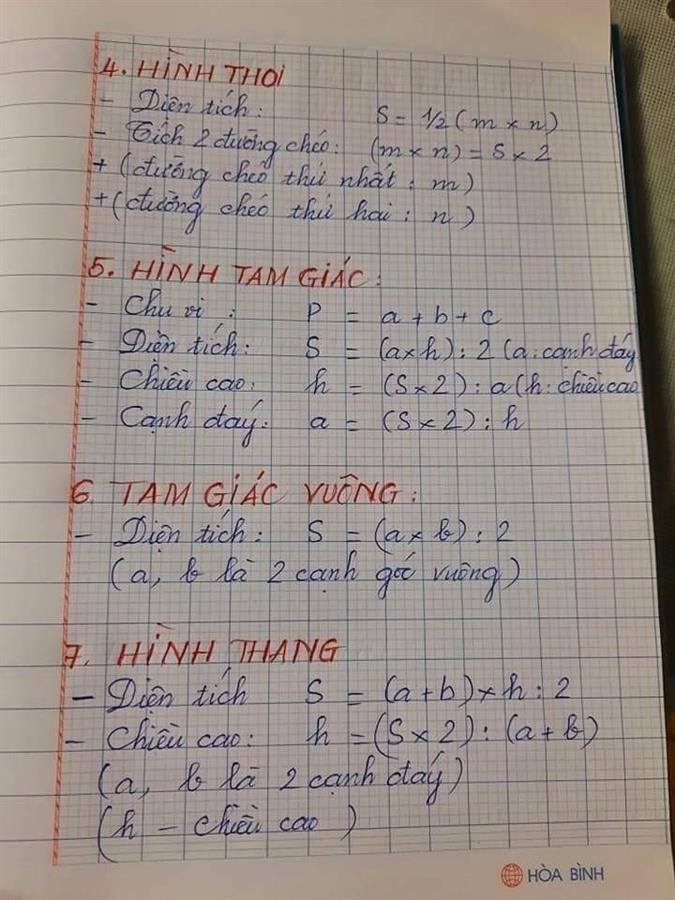 4. HÌNH THOI
- Diện tích: S = 1/2 (m x n)
- Tích 2 đường chéo: (m x n) = S x 2
+ (đường chéo thứ nhất : m)
+ (đường chéo thứ hai : n)
5. HÌNH TAM GIÁC:
- Chu vi : P = a + b + c
- Diện tích: S = (a x h) : 2 (a : cạnh đáy
- Chiều cao: h = (S x 2) : a (h : chiều cao
- Cạnh đáy: a = (S x 2) : h
6. TAM GIÁC VUÔNG:
- Diện tích: S = (a x b) : 2
(a, b là 2 cạnh góc vuông)
7. HÌNH THANG
- Diện tích S = (a + b) x h : 2
- Chiều cao: h = (S x 2) : (a + b)
(a, b là 2 cạnh đáy)
(h - chiều cao )
HÒA BÌNH